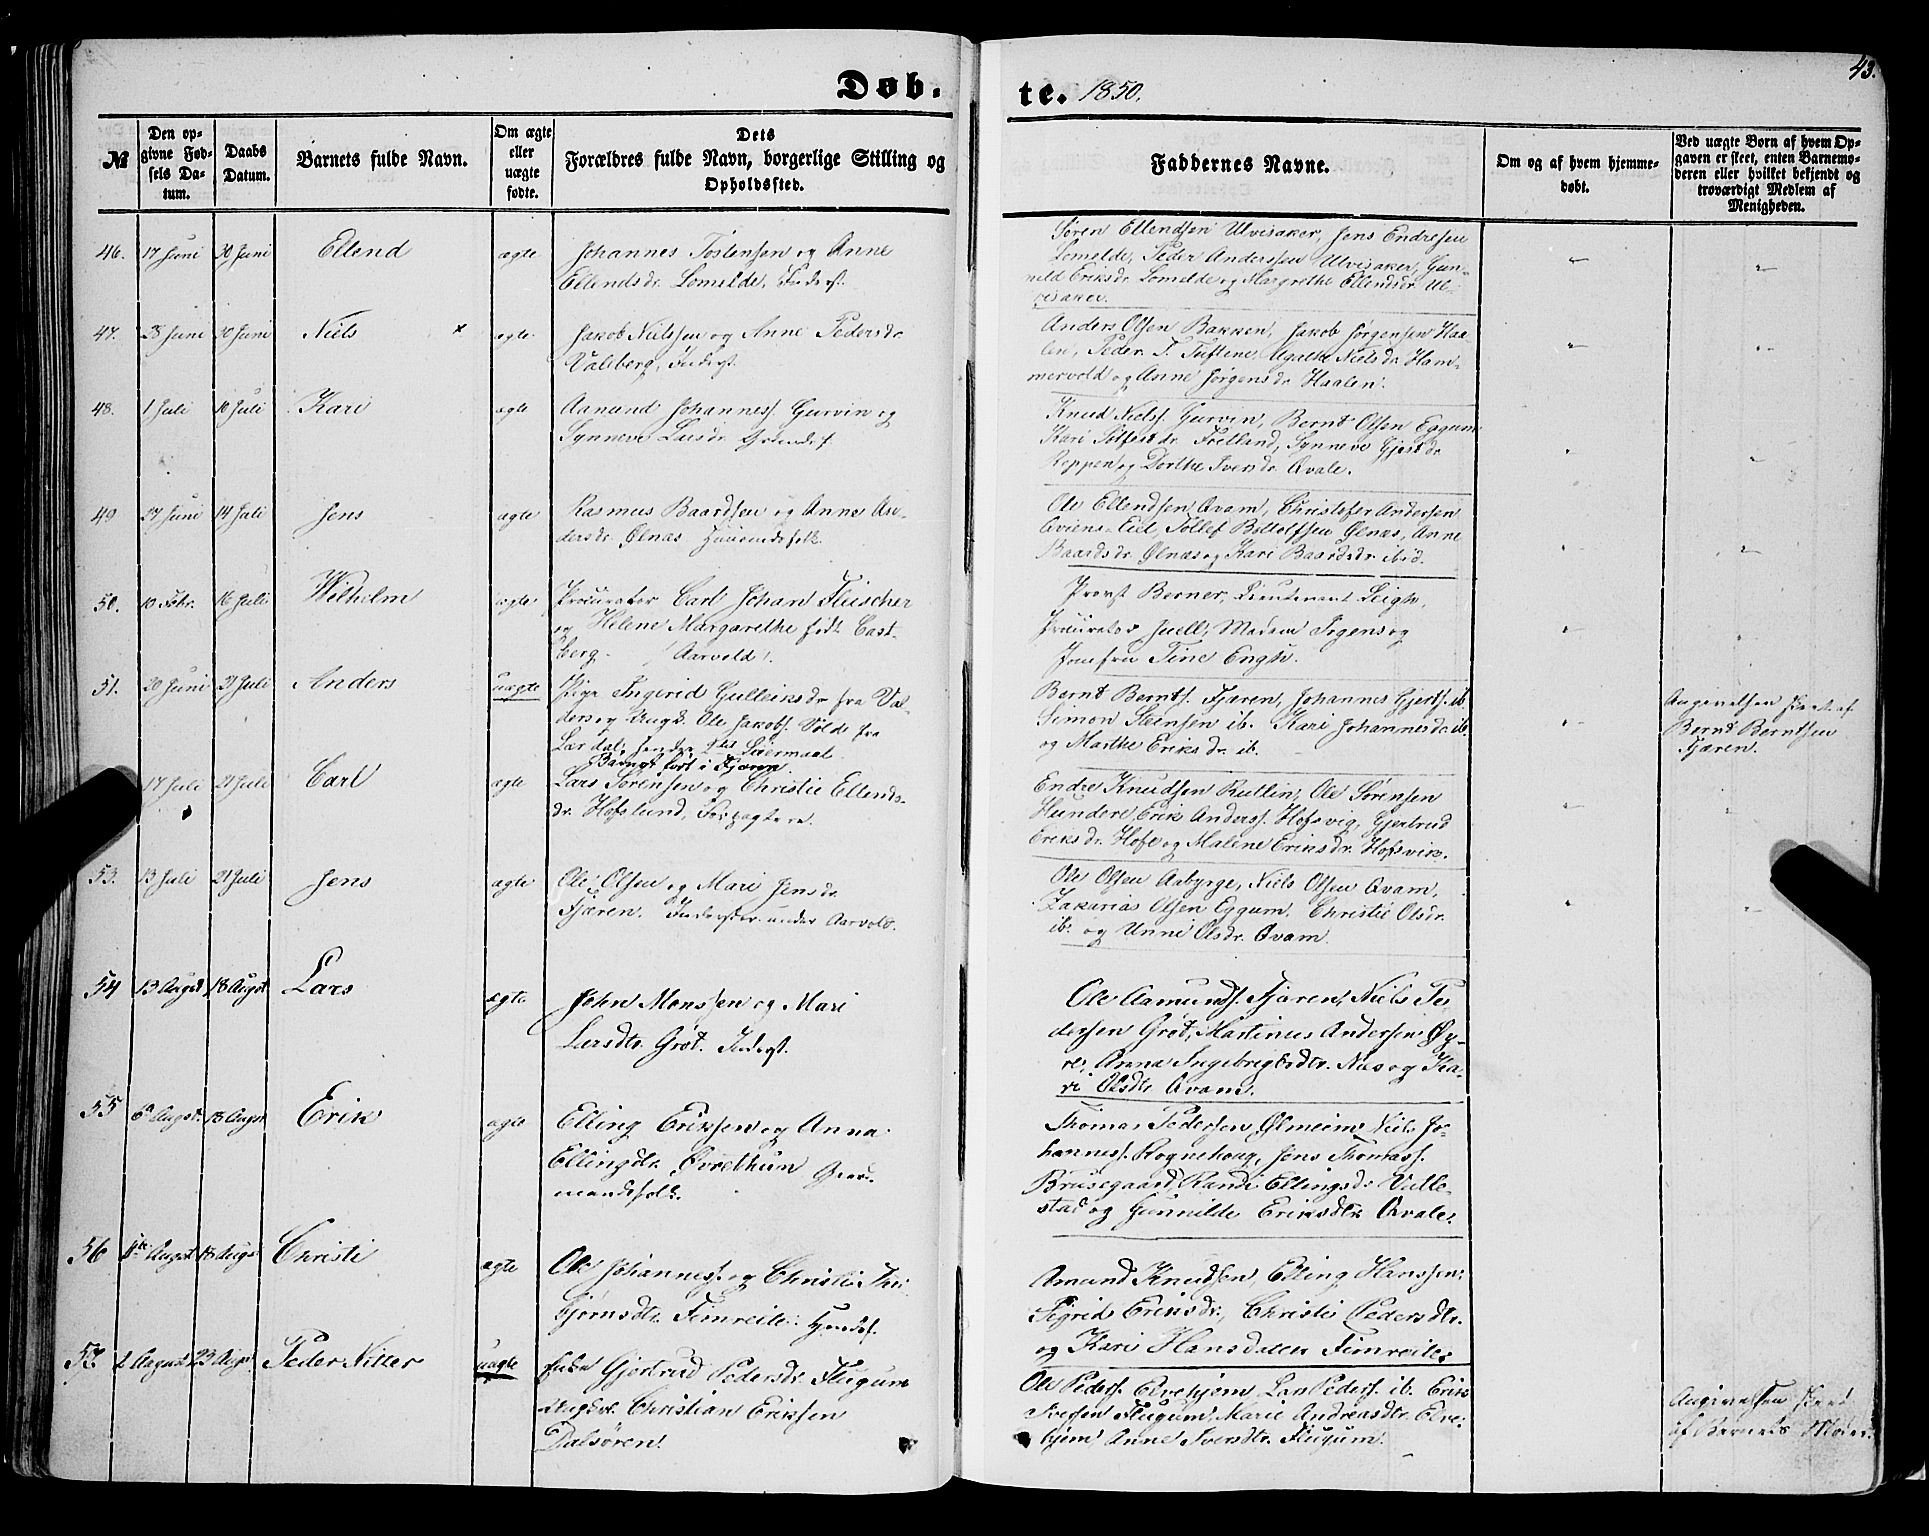 Døb.
te. 1850.
43.
№
Den op-
givne Fød-
sels Da-
tum.
Daabs
Datum.
Barnets fulde Navn.
Om ægte
eller
uægte
fødte.
Dets
Forældres fulde Navn, borgerlige Stilling og
Opholdssted.
Faddernes Navne.
Om og af hvem hjemme-
døbt.
Ved uægte Børn af hvem Op-
gaven er skeet, enten Barnemo-
deren eller hvilket bekjendt og
troværdigt Medlem af
Menigheden.
46. 17 Juni 30 Juni Ellend ægte Johannes Tostensen og Anne
Ellendsdr. Lomelde, Inderst.
Søren Ellendsen Ulvisaker, Jens Endresen
Lomelde, Peder Anderssen Ulvisaker, Gun-
nild Eriksdr. Lomelde og Margrethe Ellendsdr. Ul-
visaker.
47. 25 Juni 30 Juni Niels × ægte Jakob Nielssen og Anne Pedersdr.
Valeberg, Inderst.
Anders Olsen Bakken, Jakob Jørgensen Haa-
len, Peder T. Tuftene, Agathe Nielsdr. Ham-
mervold og Anne Jørgensdr. Haalen.
48. 1 Juli 10 Juli Kari ægte Aamund Johanness. Gurvin og
Synneve
Knud Nielss. Gurvin, Bernt Olsen Eggum
Kari Sjufestdr. Fretland, Synneve Gjestdr.
Reppen og Dorthe Iversdr. Qvale.
49 27 Juni 14 Juli Jens ægte Rasmus Baardsen og Anne An-
dersdr. Ølnæs Huusmandsfolk.
Ole Ellendsen Qvam, Christofer Andersen
Qviens-Eiet, Tollef Bottolfsen Ølnæs, Anne
Baardsdr. Ølnæs og Kari Baardsdr. ibid.
50. 10 Febr. 16 Juli Wilhelm ægte Procurator Carl Johan Fleischer
og Helene Margarethe født Cast-
berg. (Aarvold).
Provst Berner, Lieutenant Leigh,
Procurator Juell, Madam Irgens og
Jomfru Tine Engh.
51. 20 Juni 21 Juli Anders uægte Pige Ingerid Gulleiksdr. fra Val-
ders og Ungk. Ole Jakobs. Vold fra
Lærdal, hendes 2det Leiermaal.
Barnet født i Fjæren
Bernt Bernts. Fjæren, Johannes Gjerts. ib.
Simon Steinsen ib. Kari Johannesdr. ib.
og Marthe Eriksdr. ib.
Angivelsen skeet af
Bernt Berntsen
Fjæren.
17 Juli 21 Juli Carl ægte Lars Sørensen og Christie Ellends-
dr. Hofslund, Forpagtere.
Endre Knudsen Rutlin, Ole Sørensen
Hundere Erik Anderss. Hofsvig, Gjertrud
Eriksdr. Hofe og Malene Eriksdr. Hofsvik.
53. 13 Juli 21 Juli Jens ægte Ole Olsen og Mari Jensdr.
Fjæren. Inderster under Aarvold.
Ole Olsen Aabyrge, Niels Olsen Qvam,
Zakarias Olsen Eggum. Christie Olsdr.
ib. og Unni Olsdr. Qvam.
54 13 Augst 18 Augst Lars ægte John Monssen og Mari
Larsdtr. Grøt. Inderst.
Ole Aamunds. Fjæren, Niels Pe-
dersen Grøt, Martinus Andersen Øy-
re, Anna Ingebrigtsdtr. Næs og Ka-
ri Olsdtr. Qvam.
55 6te Augst. 18 Augst Erik ægte Elling Eriksen og Anna
Ellingdtr. Øvrethun Huus-
mandsfolk.
Thomas Pedersen Ølmeim, Niels Jo-
hanness. Rognehoug, Jens Thomass.
Brusegaard, Randi Ellingsdr. Valle-
stad og Gunnilde Eriksdtr. Qvale.
56 Augst 18 Augst Christi ægte Ole Johanness. og Christi Thor-
bjørnsdtr. Fimreite.
Amund Knudsen, Elling Hanssen,
Sigrid Eriksdr., Christi Pedersdtr.
og Kari Hansdatter Fimreite.
57. 2 August 23 Augst. Peder Nitter uægte Gjertrud Pedersdr. Flugum
Ungkarl Christian Eriksen
Dalsøren.
Ole Peders. Elvekjem, Lars Peders. ib. Erik
Iversen Flugum, Marie Andreasdtr. Elve-
kjem Anne Iversdtr. Flugum.
Angivelsen skeet
af Barnets Moder.